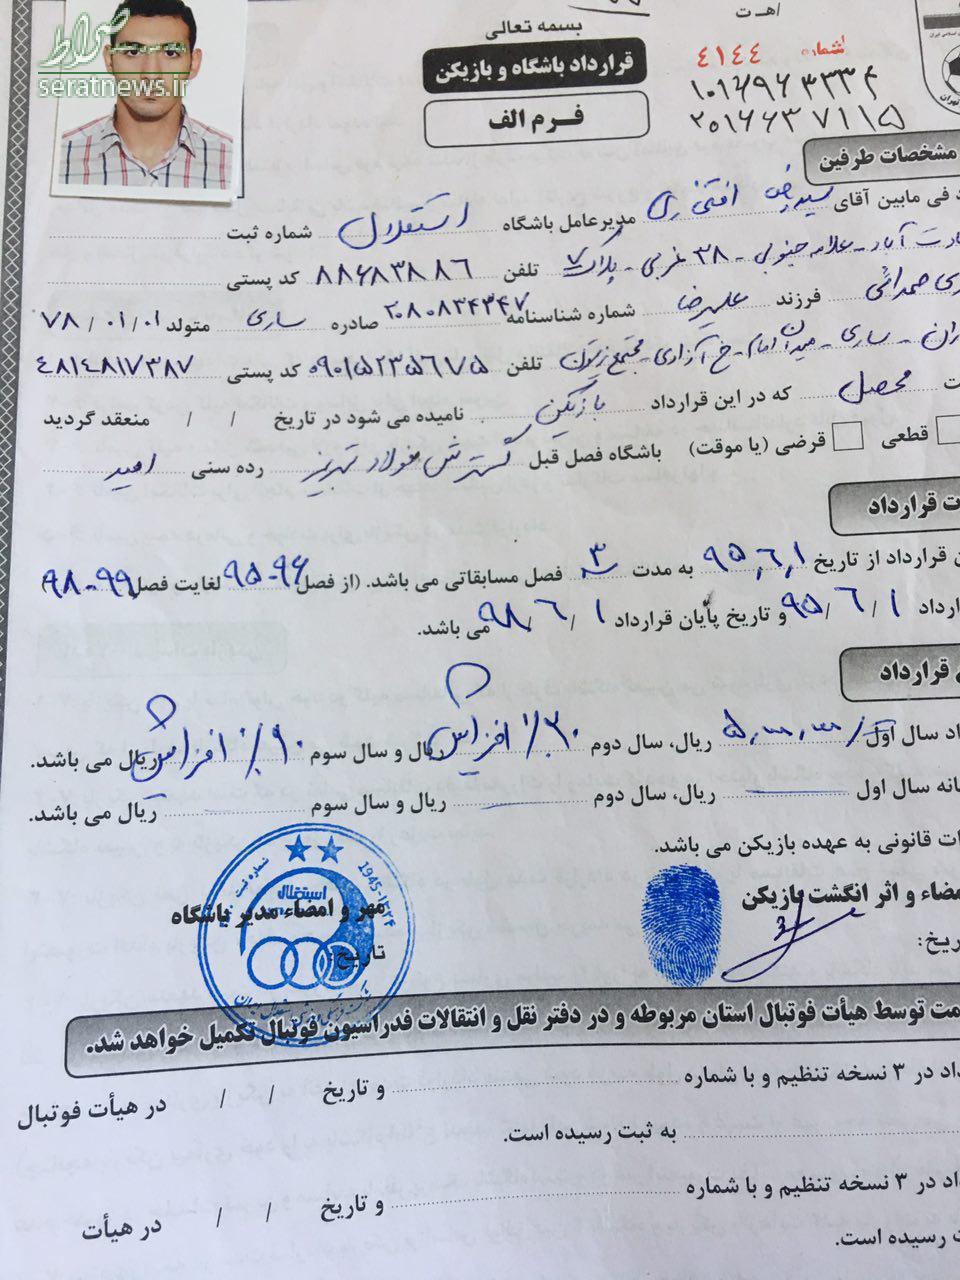 بسمه تعالی
صراط
seratnews.ir
قرارداد باشگاه و بازیکن
فرم الف
شماره ۴۱۴۴
مشخصات طرفین
د فی مابین آقای سید رضا افتخاری مدیرعامل باشگاه استقلال شماره ثبت
علامه جنوبی - ۳۸ غربی - پلاک ۷ تلفن ۸۸۶۸۳۸۸۶ کد پستی
فرزند علیرضا شماره شناسنامه ۲۰۸۰۸۳۴۳۴۷ صادره ساری متولد ۷۸/۰۱/۰۱
ساری - میدان امام - خ آزادی - مجتمع زیتون تلفن ۰۹۰۱۵۲۳۵۶۷۵ کد پستی ۴۸۱۴۸۱۷۳۸۷
محصل که در این قرارداد بازیکن نامیده می شود در تاریخ / / منعقد گردید
قطعی قرضی (یا موقت) باشگاه فصل قبل گسترش فولاد تبریز رده سنی امید
ت قرارداد
ن قرارداد از تاریخ ۹۵,۶,۱ به مدت ۳ فصل مسابقاتی می باشد. (از فصل ۹۶-۹۵ لغایت فصل ۹۹-۹۸)
رارداد ۹۵/۶/۱ و تاریخ پایان قرارداد ۹۸/۶/۱ می باشد.
قرارداد
اد سال اول ریال، سال دوم ۳۰٪ افزایش ریال و سال سوم افزایش ریال می باشد.
انه سال اول ریال، سال دوم ریال و سال سوم ریال می باشد.
ات قانونی به عهده بازیکن می باشد.
مضاء و اثر انگشت بازیکن
مهر و امضاء مدیر باشگاه
ریخ:
تاریخ:
استقلال
شماره ثبت
1945-1324
مت توسط هیأت فوتبال استان مربوطه و در دفتر نقل و انتقالات فدراسیون فوتبال تکمیل خواهد شد.
داد در ۳ نسخه تنظیم و با شماره و تاریخ / / در هیأت فوتبال
به ثبت رسیده است.
داد در ۳ نسخه تنظیم و با شماره و تاریخ / / در هیأت
ت رسیده است.